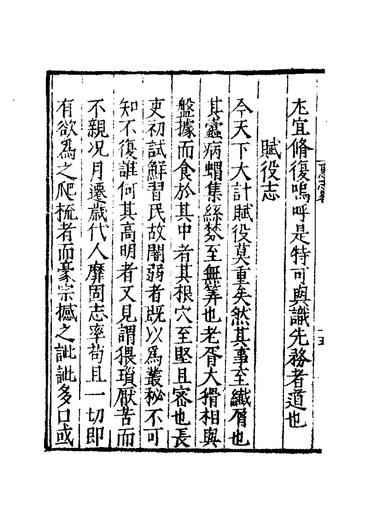 尤宜脩復嗚呼是特可與識先務者道也
賦役志
今天下大計賦役莫重矣然其事至纖屑也
其蠹病蝟集絲棼至無筭也老胥大猾相與
盤據而食於其中者其根穴至堅且密也長
吏初試鮮習民故闇弱者既以為叢秘不可
知不復誰何其高明者又見謂猥瑣厭苦而
不親況月遷歲代人靡固志率苟且一切即
有欲為之爬梳者而豪宗撼之訿訿多口或